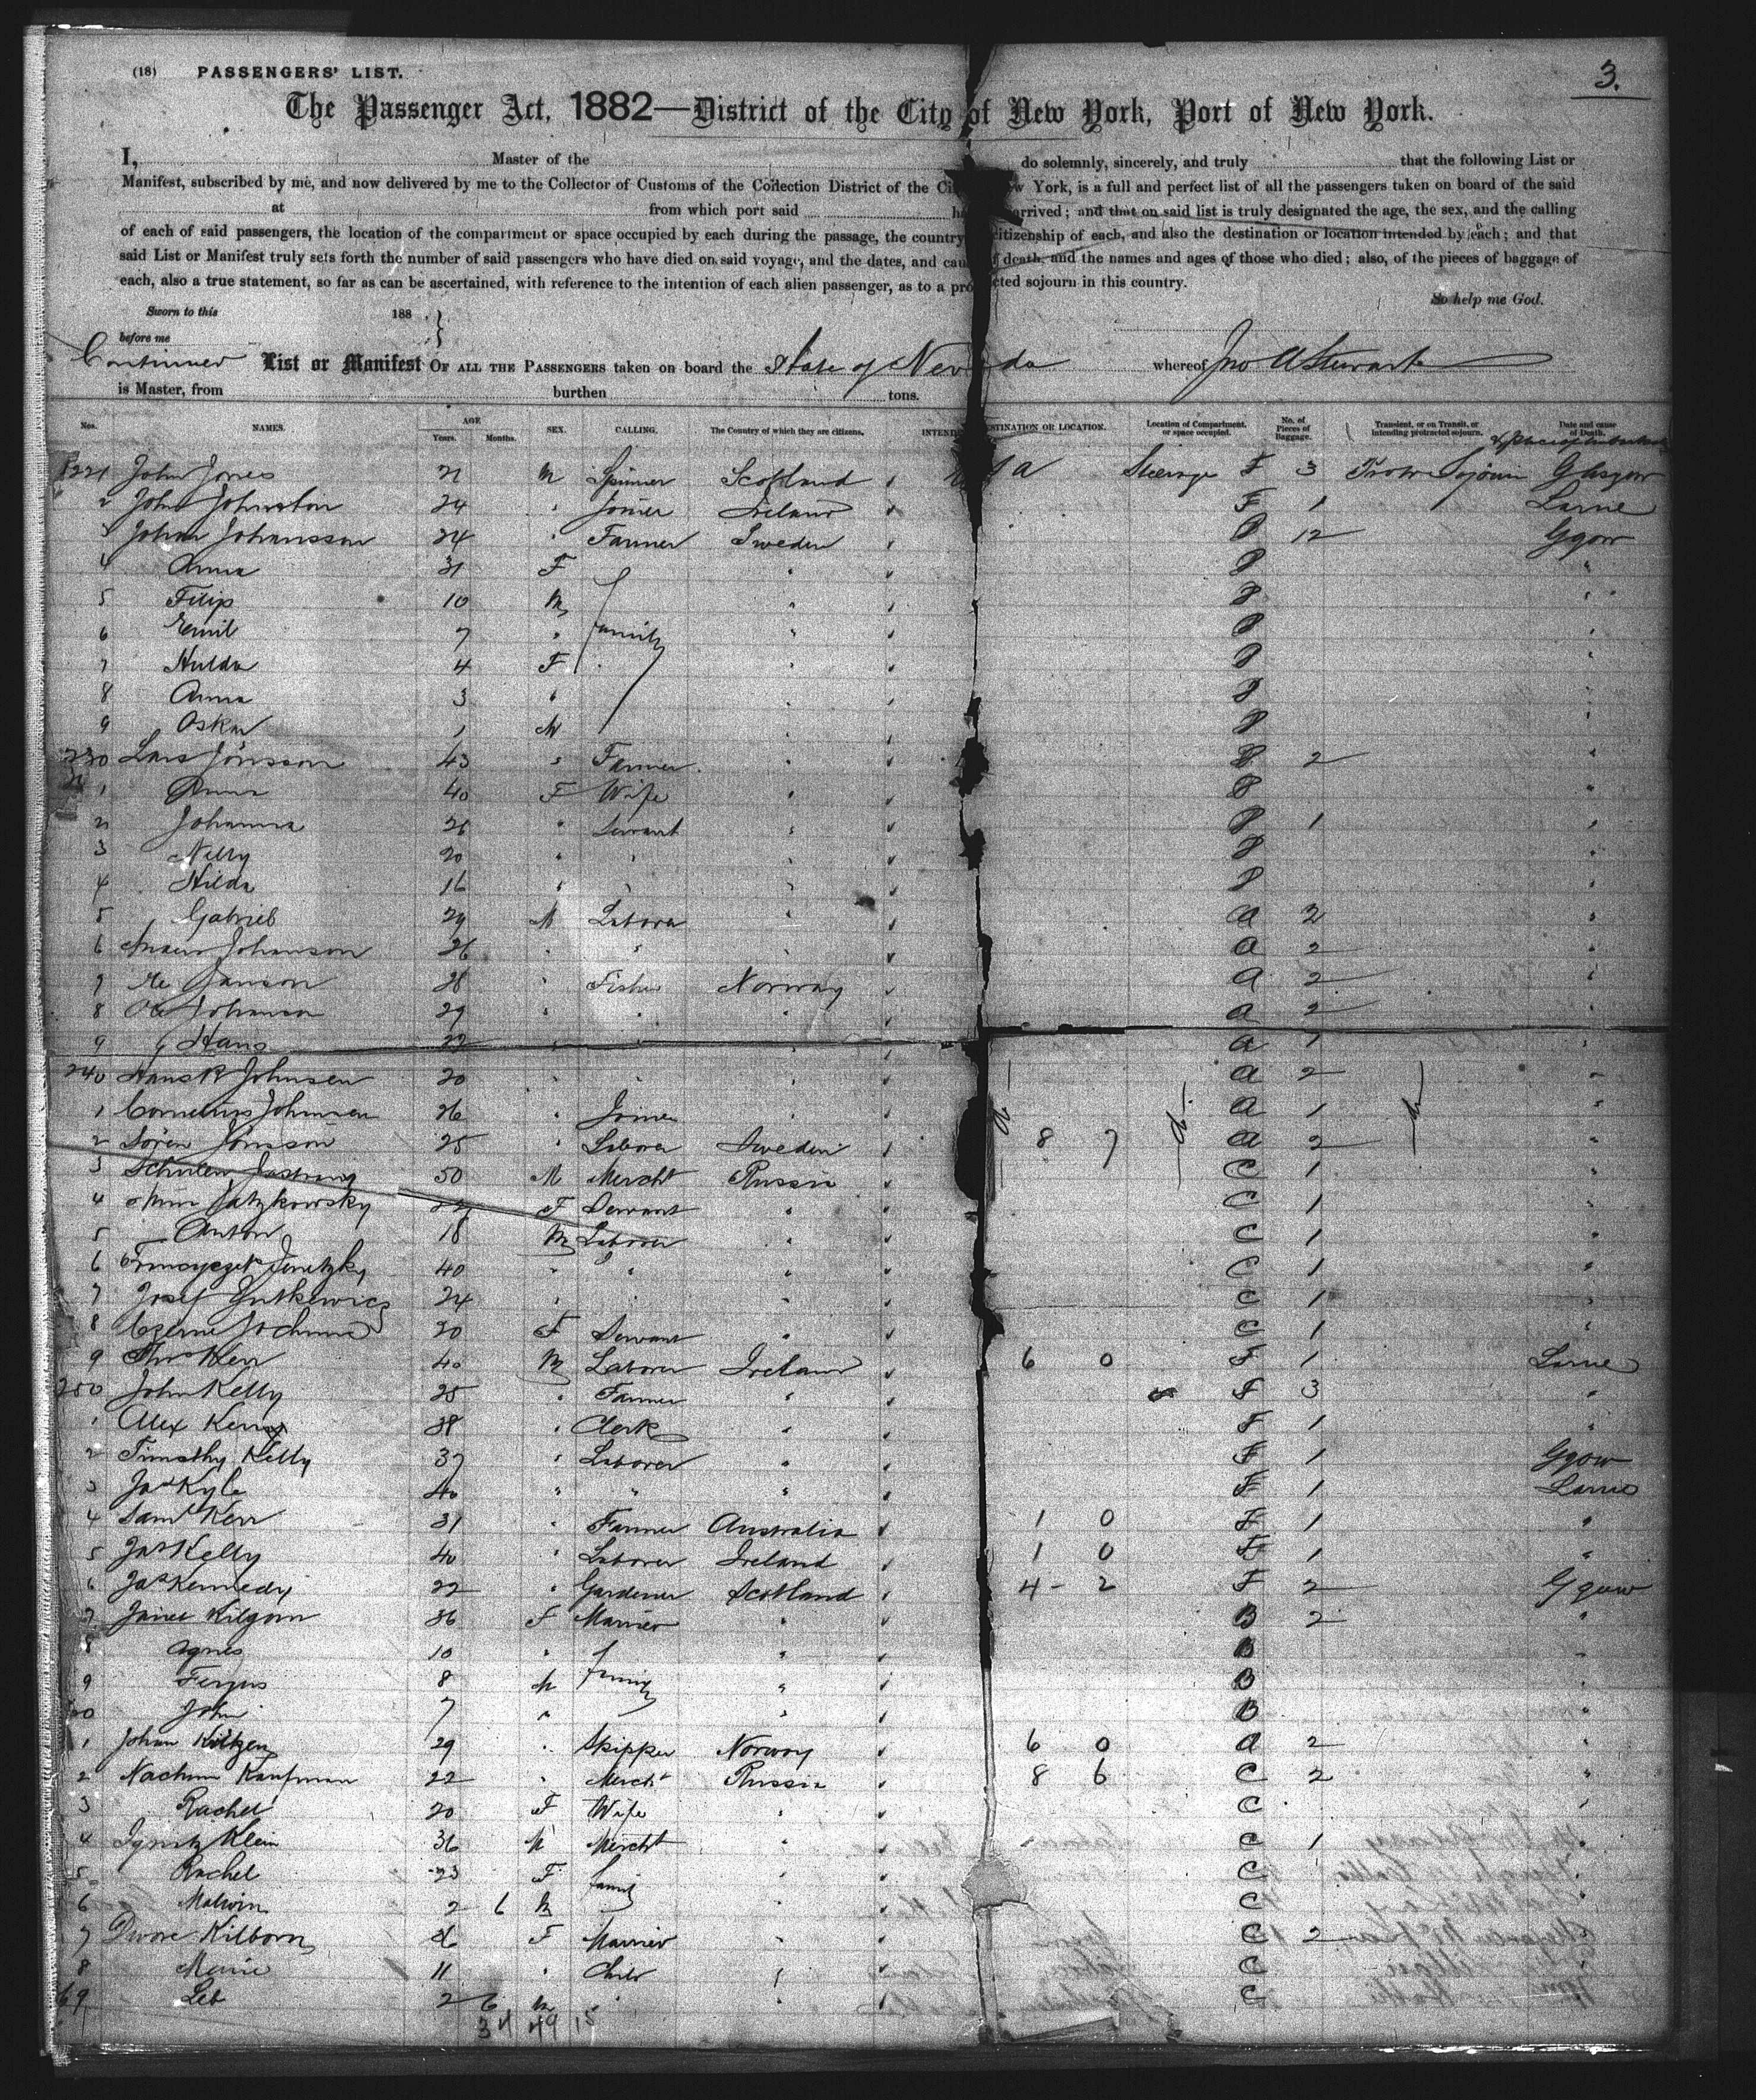 (18) PASSENGERS' LIST.
3.
The Passenger Act, 1882—District of the City of New York, Port of New York.
I, Master of the do solemnly, sincerely, and truly that the following List or
Manifest, subscribed by me, and now delivered by me to the Collector of Customs of the Collection District of the Ci w York, is a full and perfect list of all the passengers taken on board of the said
at from which port said ha arrived; and that on said list is truly designated the age, the sex, and the calling
of each of said passengers, the location of the compartment or space occupied by each during the passage, the country citizenship of each, and also the destination or location intended by each; and that
said List or Manifest truly sets forth the number of said passengers who have died on said voyage, and the dates, and cau f death, and the names and ages of those who died; also, of the pieces of baggage of
each, also a true statement, so far as can be ascertained, with reference to the intention of each alien passenger, as to a pro cted sojourn in this country.
So help me God.
Sworn to this 188 .
before me
Continued List or Manifest OF ALL THE PASSENGERS taken on board the State of Nevada whereof Jno A Stewart
is Master, from burthen tons.
Nos. NAMES. AGE Years. Months. SEX. CALLING. The Country of which they are citizens. INTEND STINATION OR LOCATION. Location of Compartment, or space occupied. No. of Pieces of Baggage. Transient, or on Transit, or intending protracted sojourn. Date and cause of Death.
& place of embarkation
221 John Jones 21 M Spinner Scotland S A Steerage F 3 Protr Sojourn Glasgow
2 John Johnston 24 " Joiner Ireland F 1 Larne
3 Johan Johansson 34 " Farmer Sweden P 12 Ggow
4 Anna 31 F " P "
5 Filip 10 M " P "
6 Emil 7 " family " P "
7 Hulda 4 F " P "
8 Anna 3 " " P "
9 Oskar 1 M " P "
230 Lars Jönsson 43 " Farmer " P 2 "
1 Anna 40 F Wife " P "
2 Johanna 26 " Servant " P 1 "
3 Nelly 20 " " " P "
4 Hilda 16 " " " P "
5 Gabriel 29 M Laborer " A 2 "
6 Johanson 26 " " " A 2 "
7 Janson 28 " Fisher Norway A 2 "
8 Ole Johanson 29 " " " A 2 "
9 Hans 22 " " " A 1 "
240 Hans K Johnsen 20 " " " A 2 "
1 Cornelius Johnsen 26 " Joiner " A 1 "
2 Sören Jönsson 25 " Laborer Sweden 8 7 A 2 "
3 50 M Mercht Russia C 1 "
4 Jatzkowsky 22 F Servant " C 1 "
5 Anton 18 M Laborer " C 1 "
6 40 " " " C 1 "
7 Josef 24 " " " C 1 "
8 20 F Servant " C 1 "
9 Thos Kerr 40 M Laborer Ireland 6 0 F 1 Larne
250 John Kelly 25 " Farmer " F 3 "
1 Alex Kerr 38 " Clerk " F 1 "
2 Timothy Kelly 37 " Laborer " F 1 Ggow
3 Jas Kyle 40 " " " F 1 Larne
4 Saml Kerr 31 " Farmer Australia 1 0 F 1 "
5 Jas Kelly 40 " Laborer Ireland 1 0 F 1 "
6 Jas Kennedy 22 " Gardener Scotland 4 - 2 F 2 Ggow
7 Janet Kilgour 36 F Married " B 2 "
8 Agnes 10 " " B "
9 Fergus 8 M family " B "
60 John 7 " " B "
1 Johan 29 " Skipper Norway 6 0 A 2 "
2 Nachum Kaufman 22 " Mercht Russia 8 6 C 2 "
3 Rachel 20 F Wife " C "
4 Ignatz Klein 36 M Mercht " C 1 "
5 Rachel 23 F family " C "
6 Malwin 2 6 M " C "
7 Dwore Kilborn 26 F Married " C 2 "
8 11 " Child " C "
69 Leb 2 6 M " " C
34 49 15